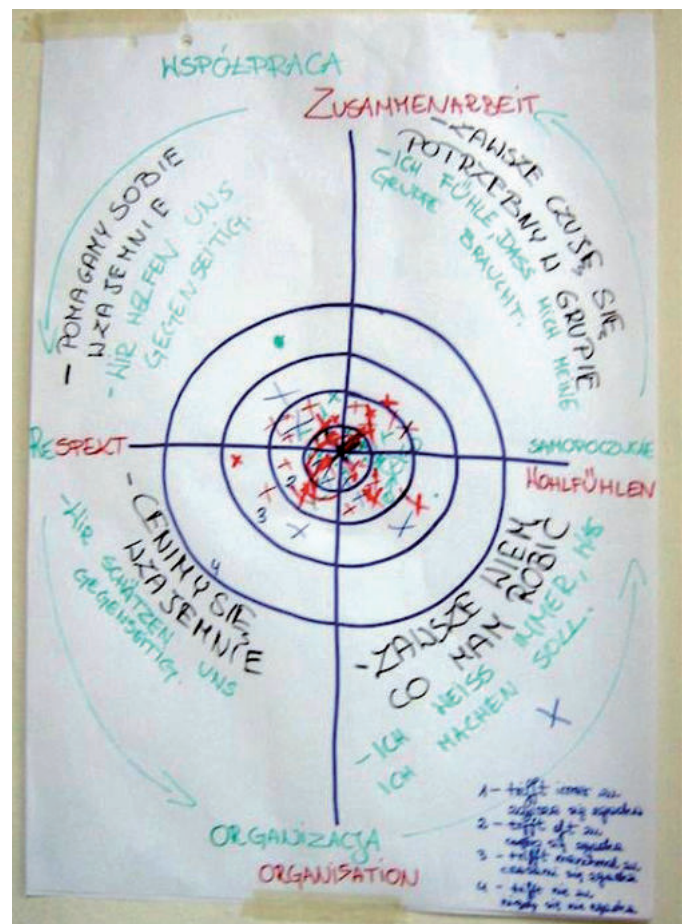 WSPÓŁPRACA
ZUSAMMENARBEIT
- POMAGAMY SOBIE
WZAJEMNIE
- WIR HELFEN UNS
GEGENSEITIG.
- ZAWSZE CZUJĘ SIĘ
POTRZEBNY W GRUPIE
- ICH FÜHLE, DASS MICH MEINE
GRUPPE BRAUCHT.
RESPEKT
SAMOPOCZUCIE
WOHLFÜHLEN
2
3
4
- CENIMY SIĘ
WZAJEMNIE
- WIR SCHÄTZEN UNS
GEGENSEITIG.
- ZAWSZE WIEM
CO MAM ROBIĆ
- ICH WEISS IMMER, WAS
ICH MACHEN SOLL.
ORGANIZACJA
ORGANISATION
1 - trifft immer zu
zawsze się zgadza
2 - trifft oft zu
często się zgadza
3 - trifft manchmal zu
czasami się zgadza
4 - trifft nie zu
nigdy się nie zgadza